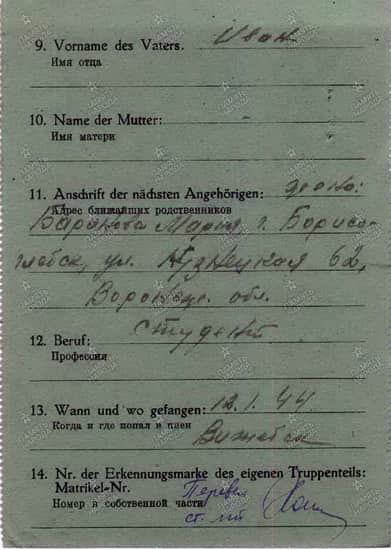 9. Vorname des Vaters. Иван
Имя отца
10. Name der Mutter:
Имя матери
11. Anschrift der nächsten Angehörigen: жена:
Адрес ближайших родственников
Баранова Мария г. Борисо-
глебск, ул. Кузнецкая 62,
Воронеж. обл.
12. Beruf: студент
Профессия
13. Wann und wo gefangen: 12.1.44
Когда и где попал в плен
Витебск
14. Nr. der Erkennungsmarke des eigenen Truppenteils:
Matrikel-Nr.
Номер в собственной части
Перевел
ст.